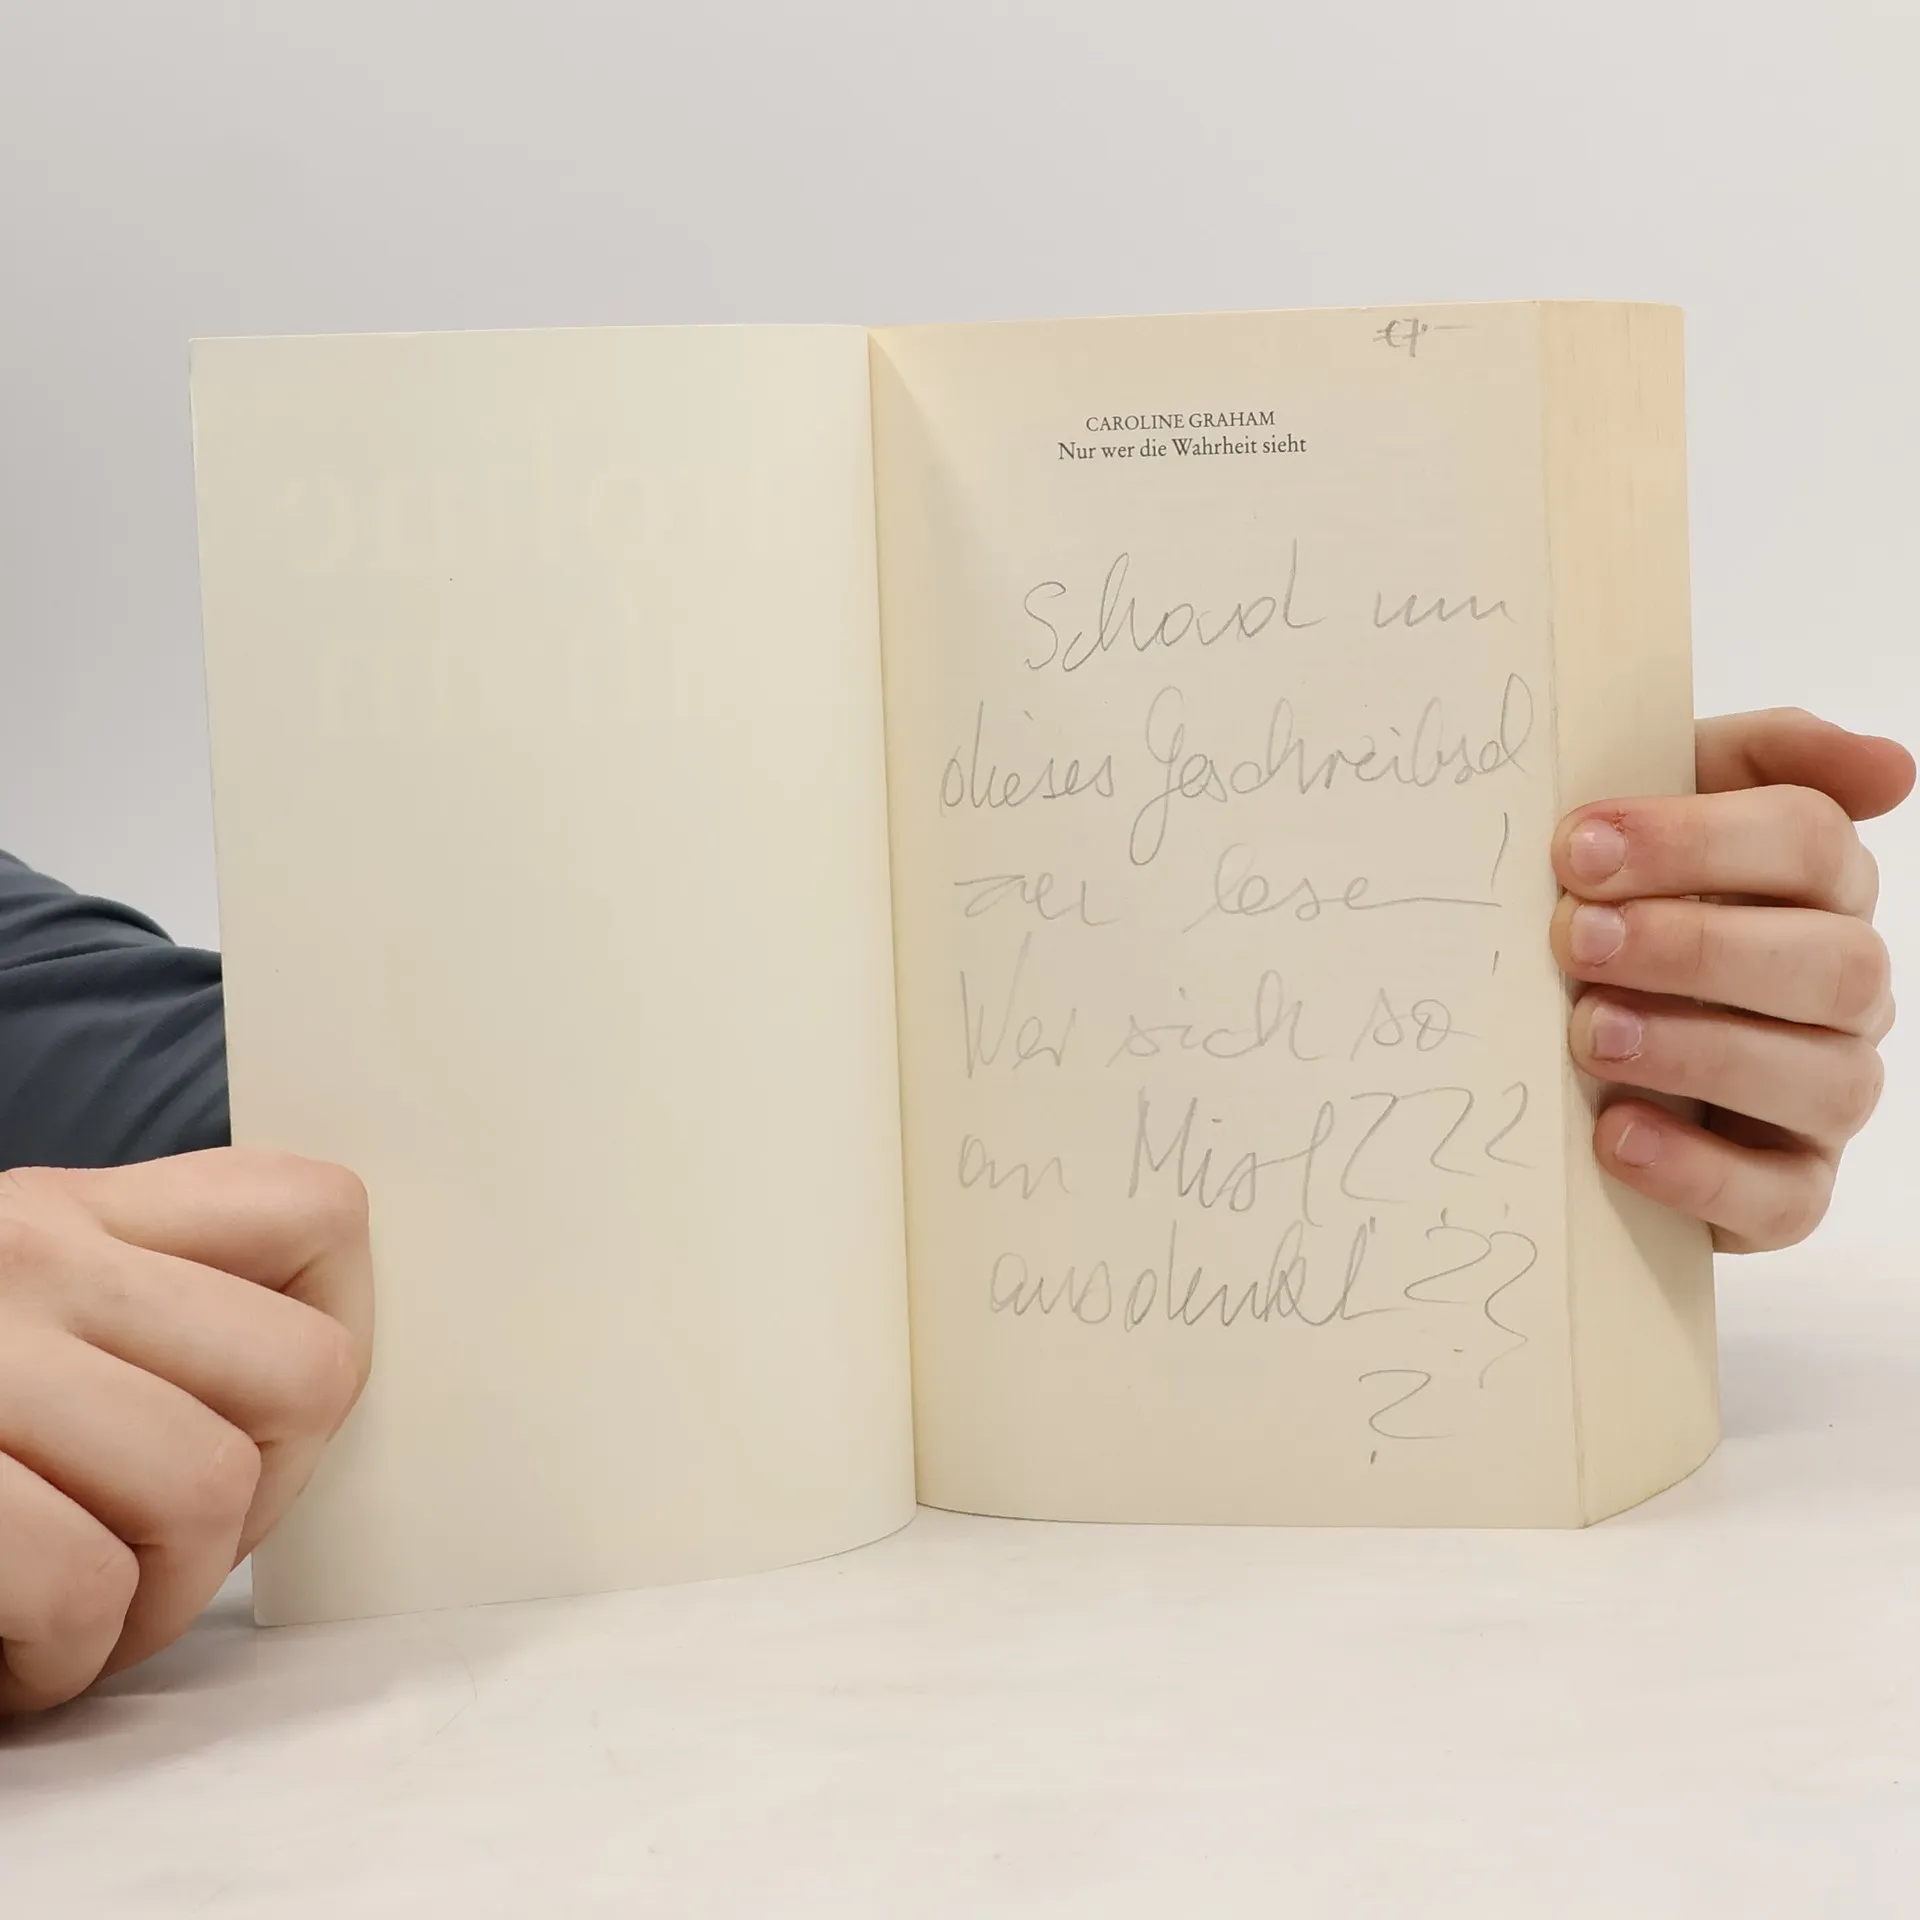 €7.—
CAROLINE GRAHAM
Nur wer die Wahrheit sieht
Schad um
dieses Geschreibsel
zu lesen!
Wer sich so
an Mist ???
ausdenkt ??
?